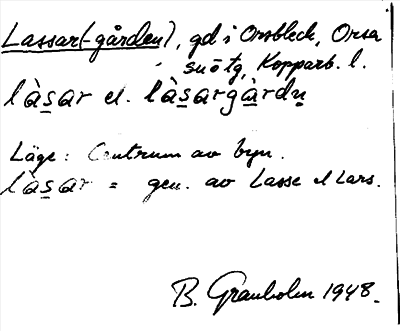 Lassar(-gården), gd i Orsbleck, Orsa
sn o tg, Kopparb. l.
làs̲ar el. làs̲argà̲rdṉ
Läge: Centrum av byn.
làs̲ar = gen. av Lasse el Lars.
B. Granholm 1948.